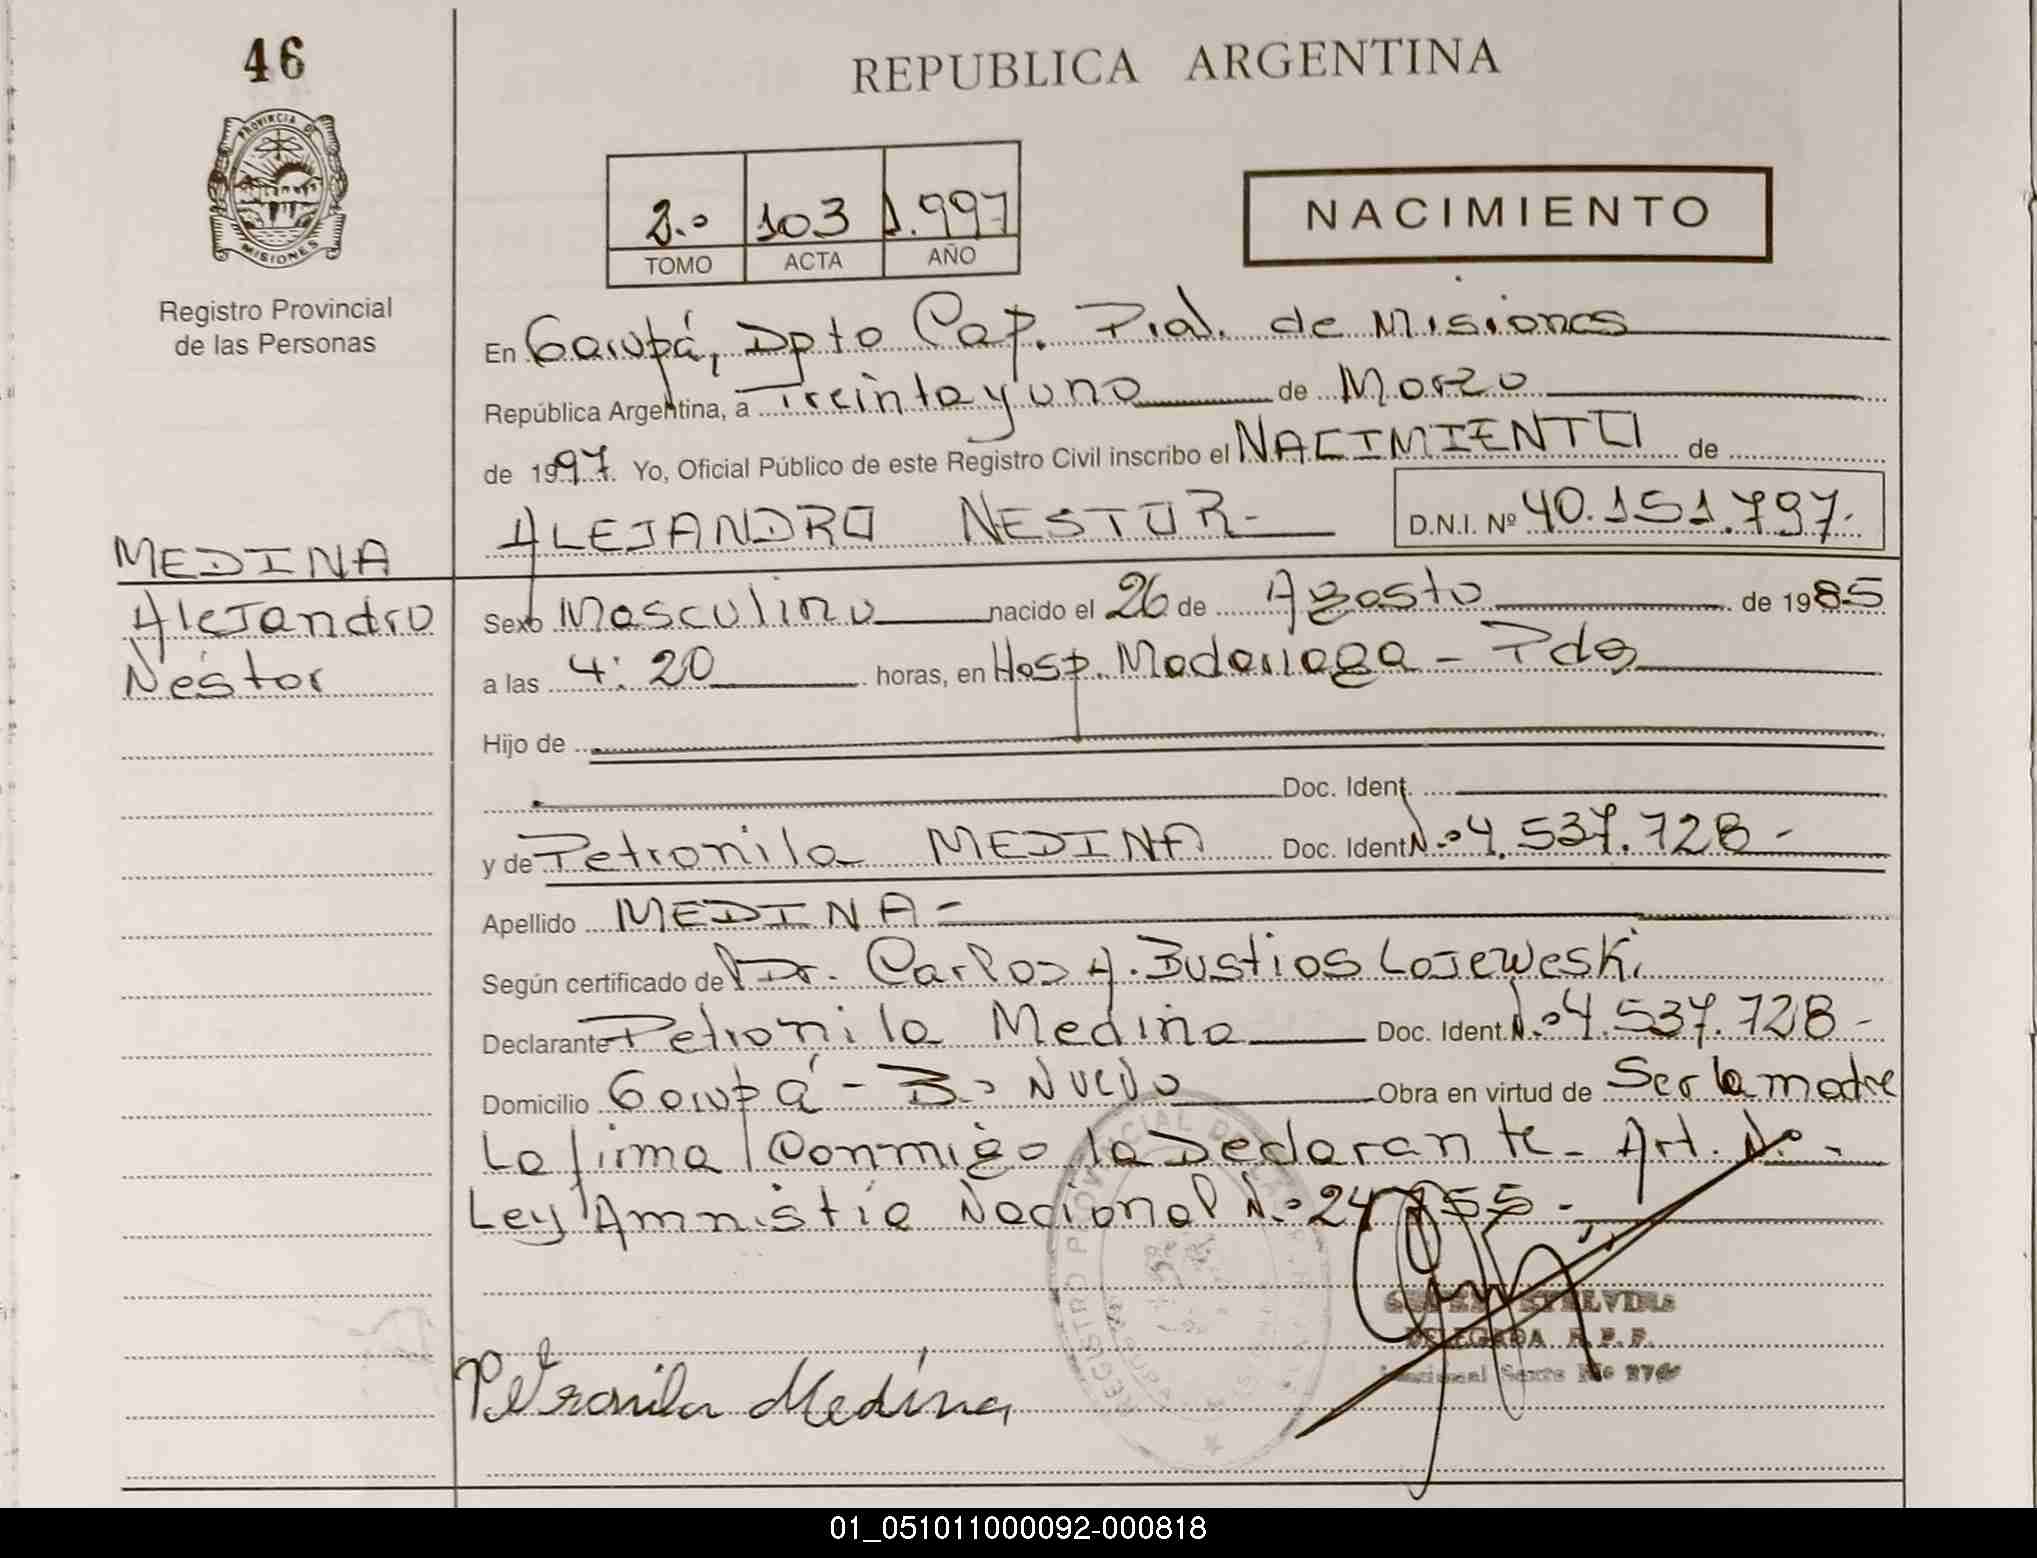 46
REPUBLICA ARGENTINA
PROVINCIA DE
MISIONES
2.º 103 1.997
TOMO ACTA AÑO
NACIMIENTO
Registro Provincial
de las Personas
En Garupá, Dpto Cap. Pial. de Misiones
República Argentina, a Treinta y uno de Marzo
de 1997. Yo, Oficial Público de este Registro Civil inscribo el NACIMIENTO de
ALEJANDRO NESTOR- D.N.I. Nº 40.151.797.
MEDINA
Alejandro
Néstor
Sexo Masculino nacido el 26 de Agosto de 1985
a las 4:20 horas, en Hosp. Madariaga - Pdas
Hijo de
Doc. Ident.
y de Petronila MEDINA Doc. Ident N.º 4.537.728 -
Apellido MEDINA -
Según certificado de Dr. Carlos A. Bustios Lojeweski
Declarante Petronila Medina Doc. Ident. N.º 4.537.728 -
Domicilio Garupá - B.º Nuevo Obra en virtud de Ser la madre
La firma Conmigo la Declarante - Art. N.º -
Ley Amnistía Nacional N.º 24.755 -
REGISTRO PROVINCIAL DE LAS
DELEGADA R.P.P.
Petronila Medina
01_051011000092-000818